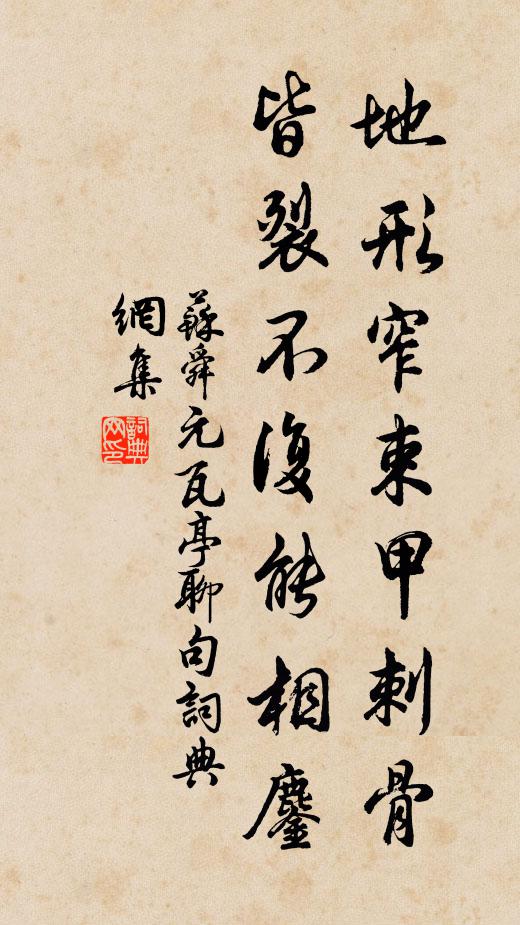 地形窄束甲刺骨
皆裂不復能相鏖
蘇舜元瓦亭聊句詞典
網集
詞典網印